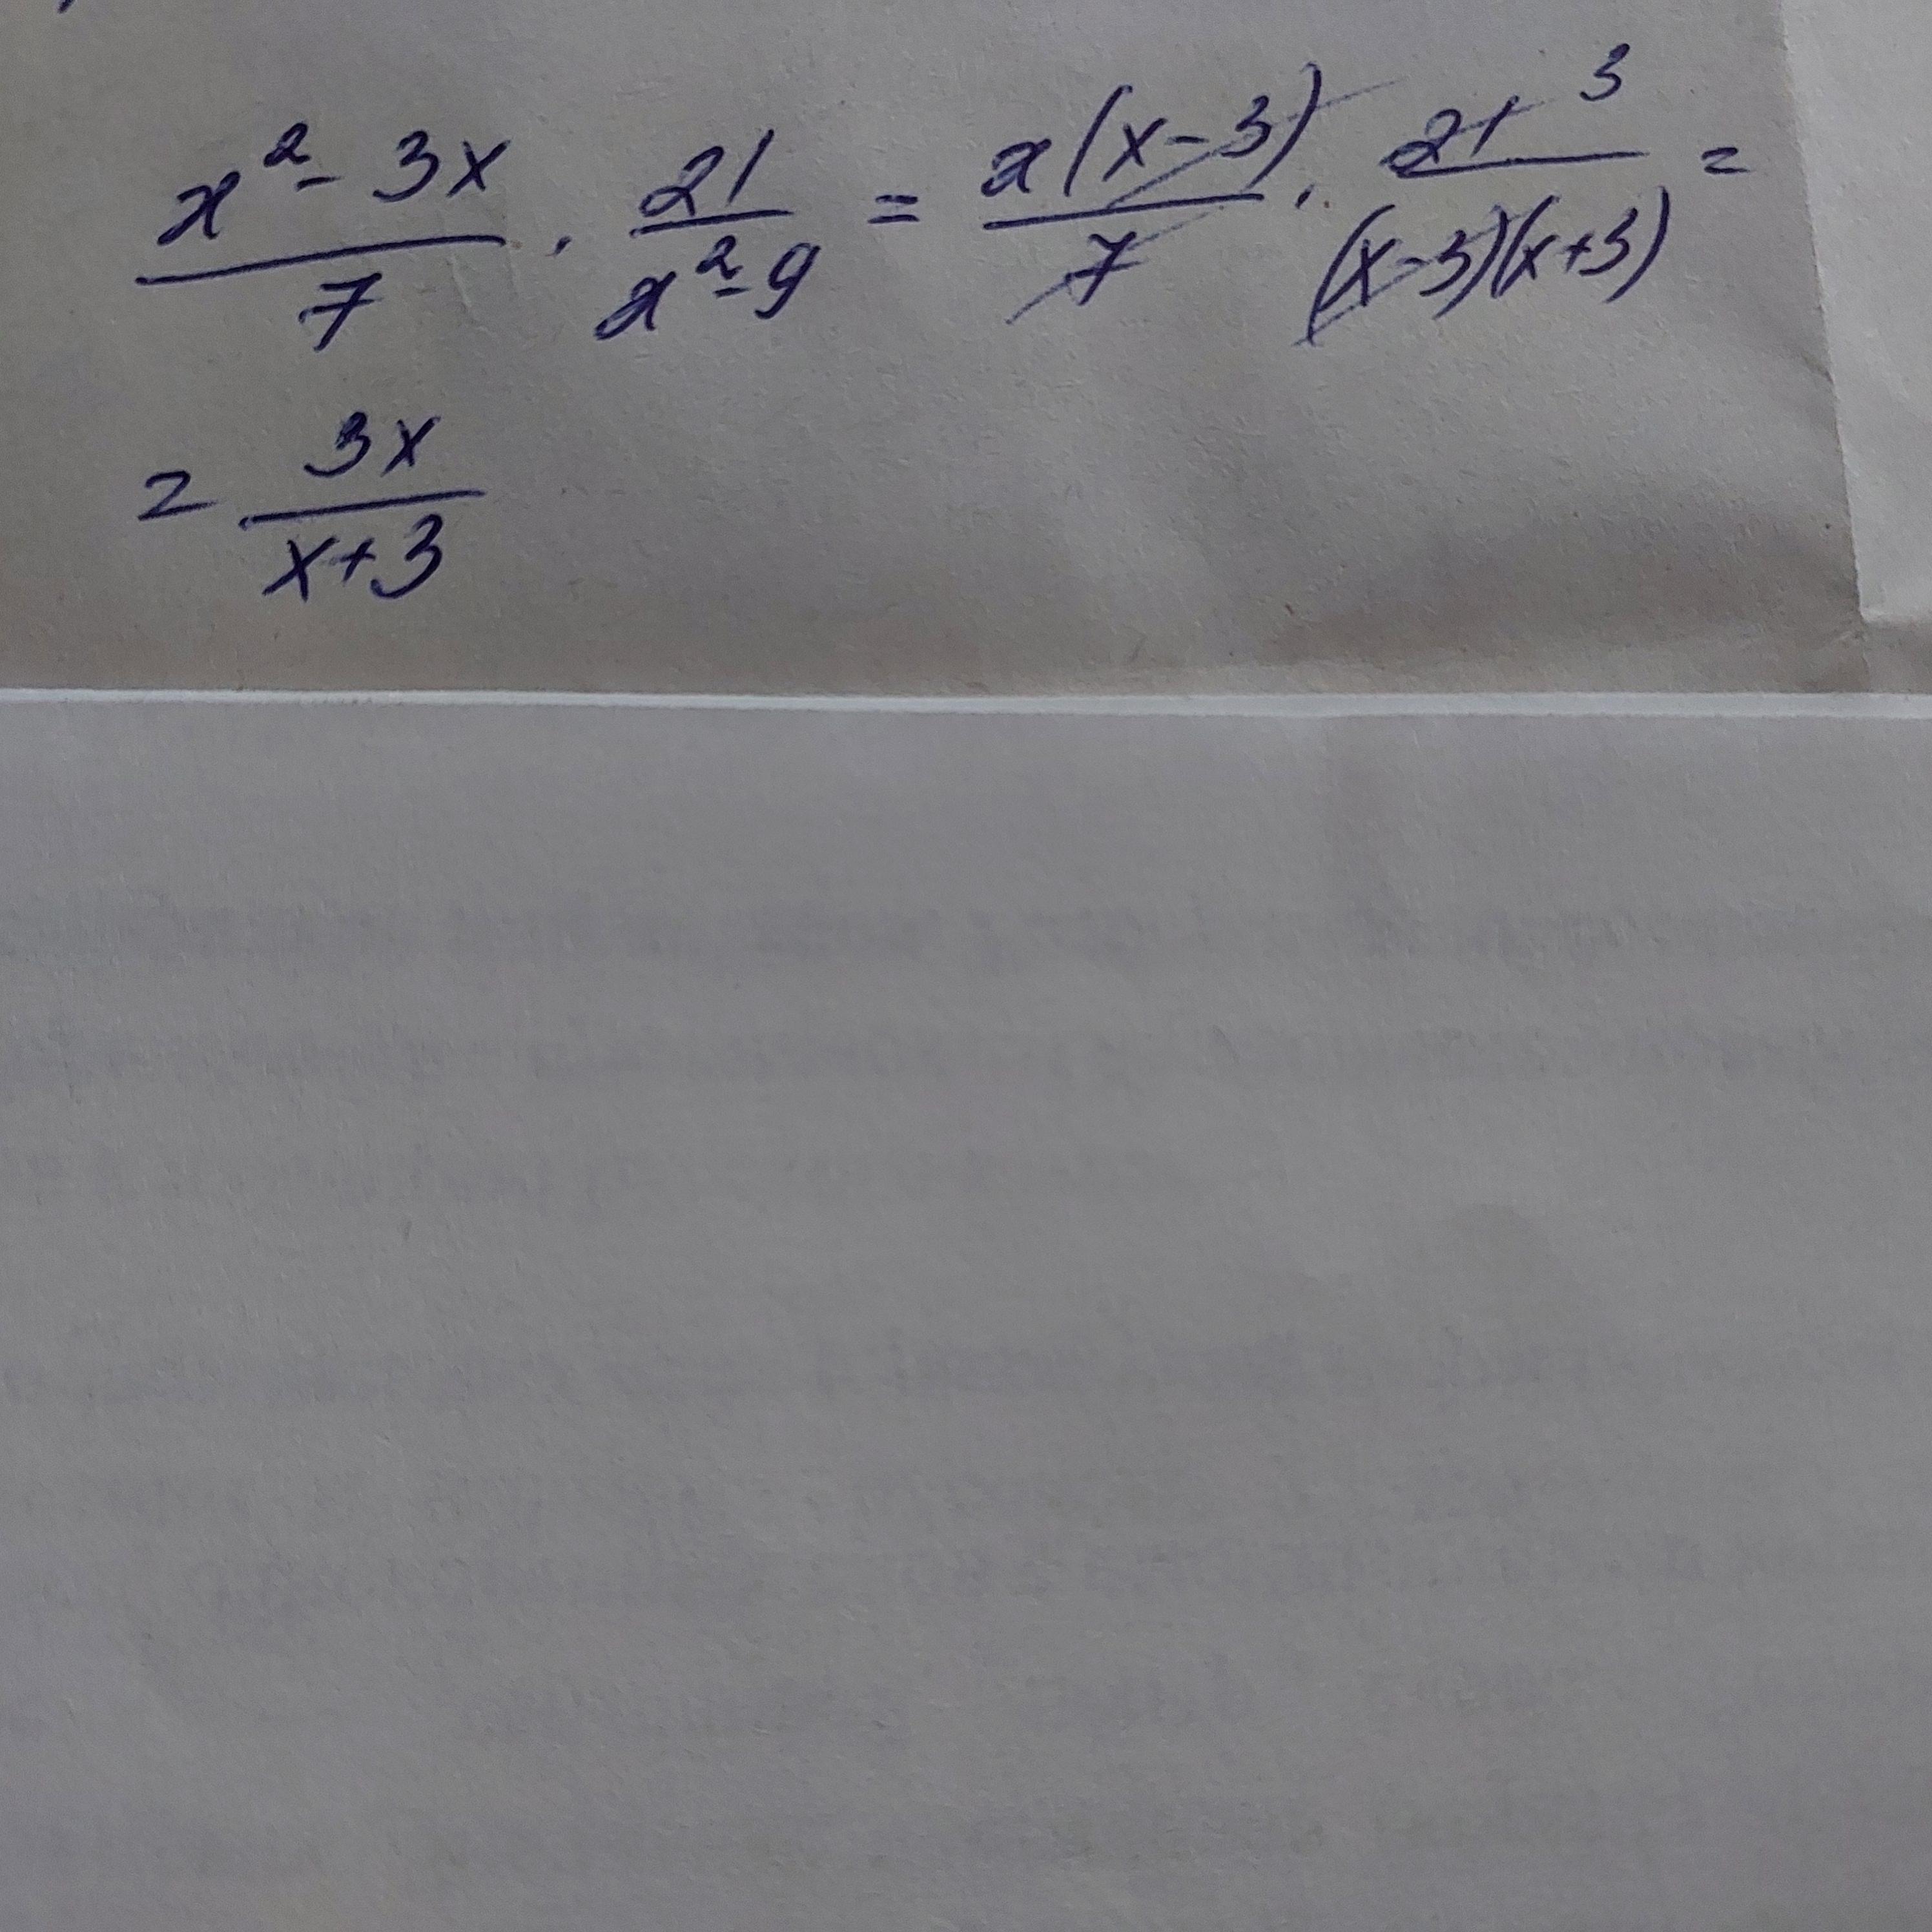 x² - 3x / 7 · 21 / x² - 9 = x(x - 3) / 7 · 21 3 / (x - 3)(x + 3) =
= 3x / x + 3